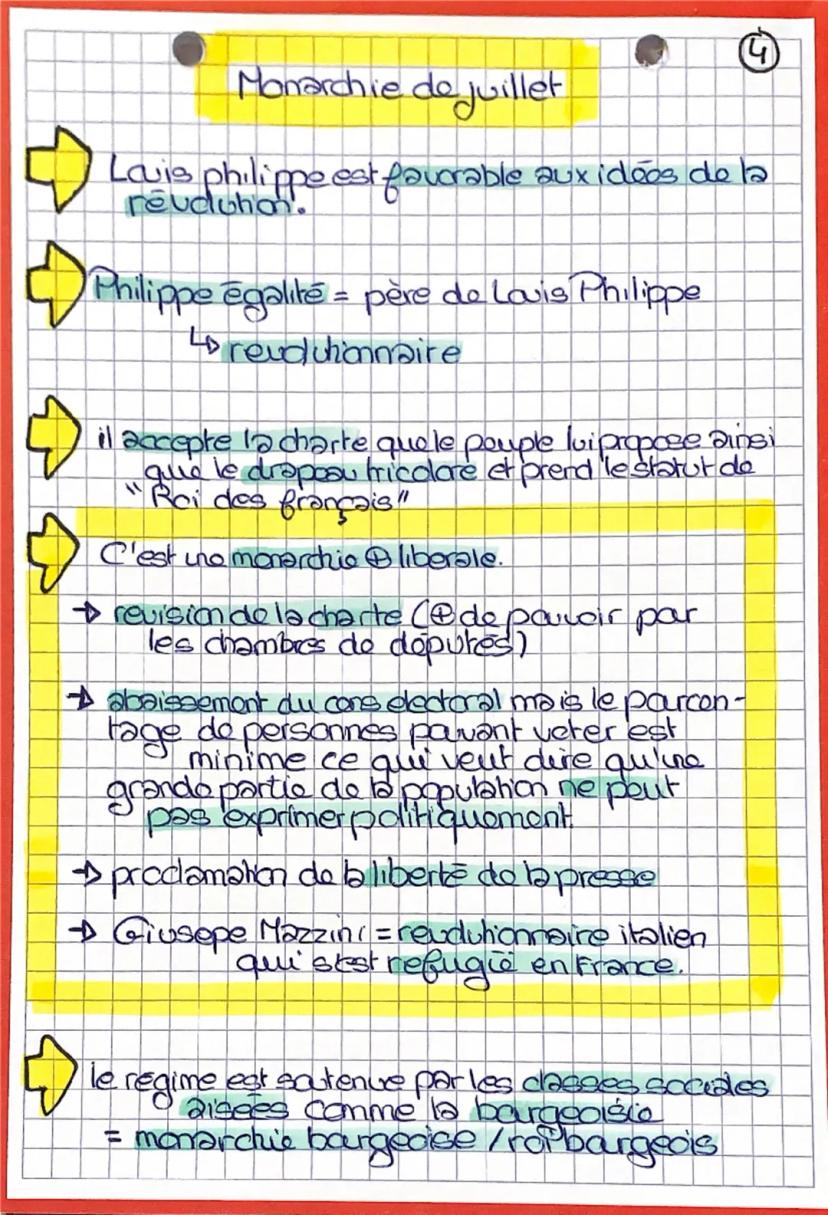 4
Monarchie de juillet
Louis philippe est favorable aux idées de la
révolution.
Philippe égalité = père de Louis Philippe
↳ revolutionnaire
il accepte la charte que le peuple lui propose ainsi
que le drapeau tricolore et prend le statut de
"Roi des français"
C'est une monarchie ⊕ liberale.
→ revision de la charte (⊕ de pouvoir par
les chambres de députés)
→ abaissement du cens electoral mais le parcen-
tage de personnes pouvant voter est
minime ce qui veut dire qu'une
grande partie de la population ne peut
pas exprimer politiquement.
→ proclamation de la liberté de la presse
→ Giusepe Mazzini = revolutionnaire italien
qui s'est refugié en France.
le régime est soutenue par les classes sociales
aisées comme la bourgeoisie
= monarchie bourgeoise / roi bourgeois